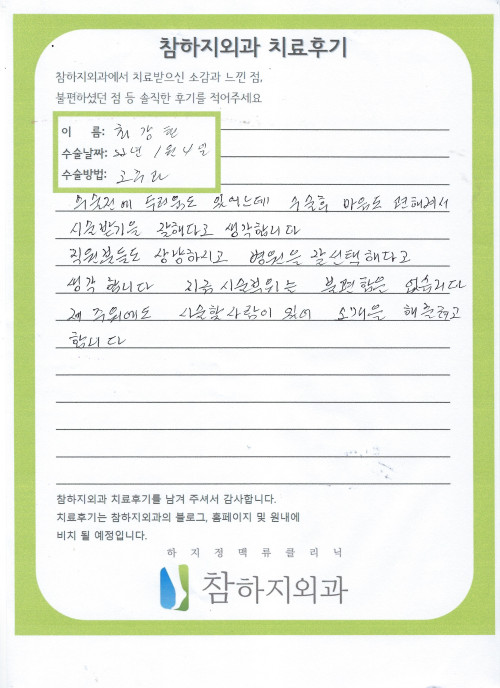 참하지외과 치료후기
참하지외과에서 치료받으신 소감과 느낀 점,
불편하셨던 점 등 솔직한 후기를 적어주세요
이 름: 최강현
수술날짜: 22년 1월 4일
수술방법: 고주파
수술전에 두려움도 있어는데 수술후 마음도 편해져서
시술받기을 잘해다고 생각합니다
직원분들도 상냥하시고 병원을 잘 선택해다고
생각 합니다 지금 시술부위는 불편함은 없습니다
제 주위에도 시술할 사람이 있어 소개을 해줄려고
합니다
참하지외과 치료후기를 남겨 주셔서 감사합니다.
치료후기는 참하지외과의 블로그, 홈페이지 및 원내에
비치 될 예정입니다.
하지정맥류클리닉
참하지외과